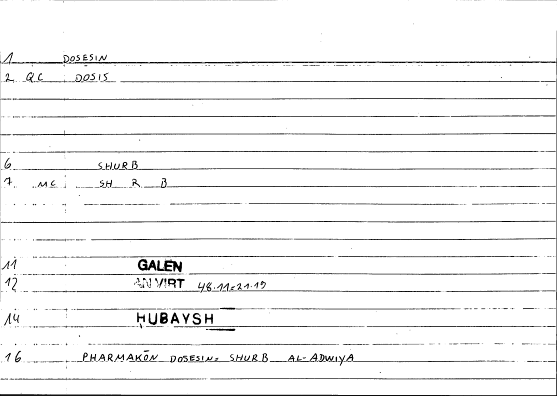 1 DOSESIN
2 QC DOSIS
6 SHURB
7 MC SH R B
11 GALEN
12 AN VIRT 48.11=21.19
14 HUBAYSH
16 PHARMAKŌN DOSESIN= SHURB AL-ADWIYA